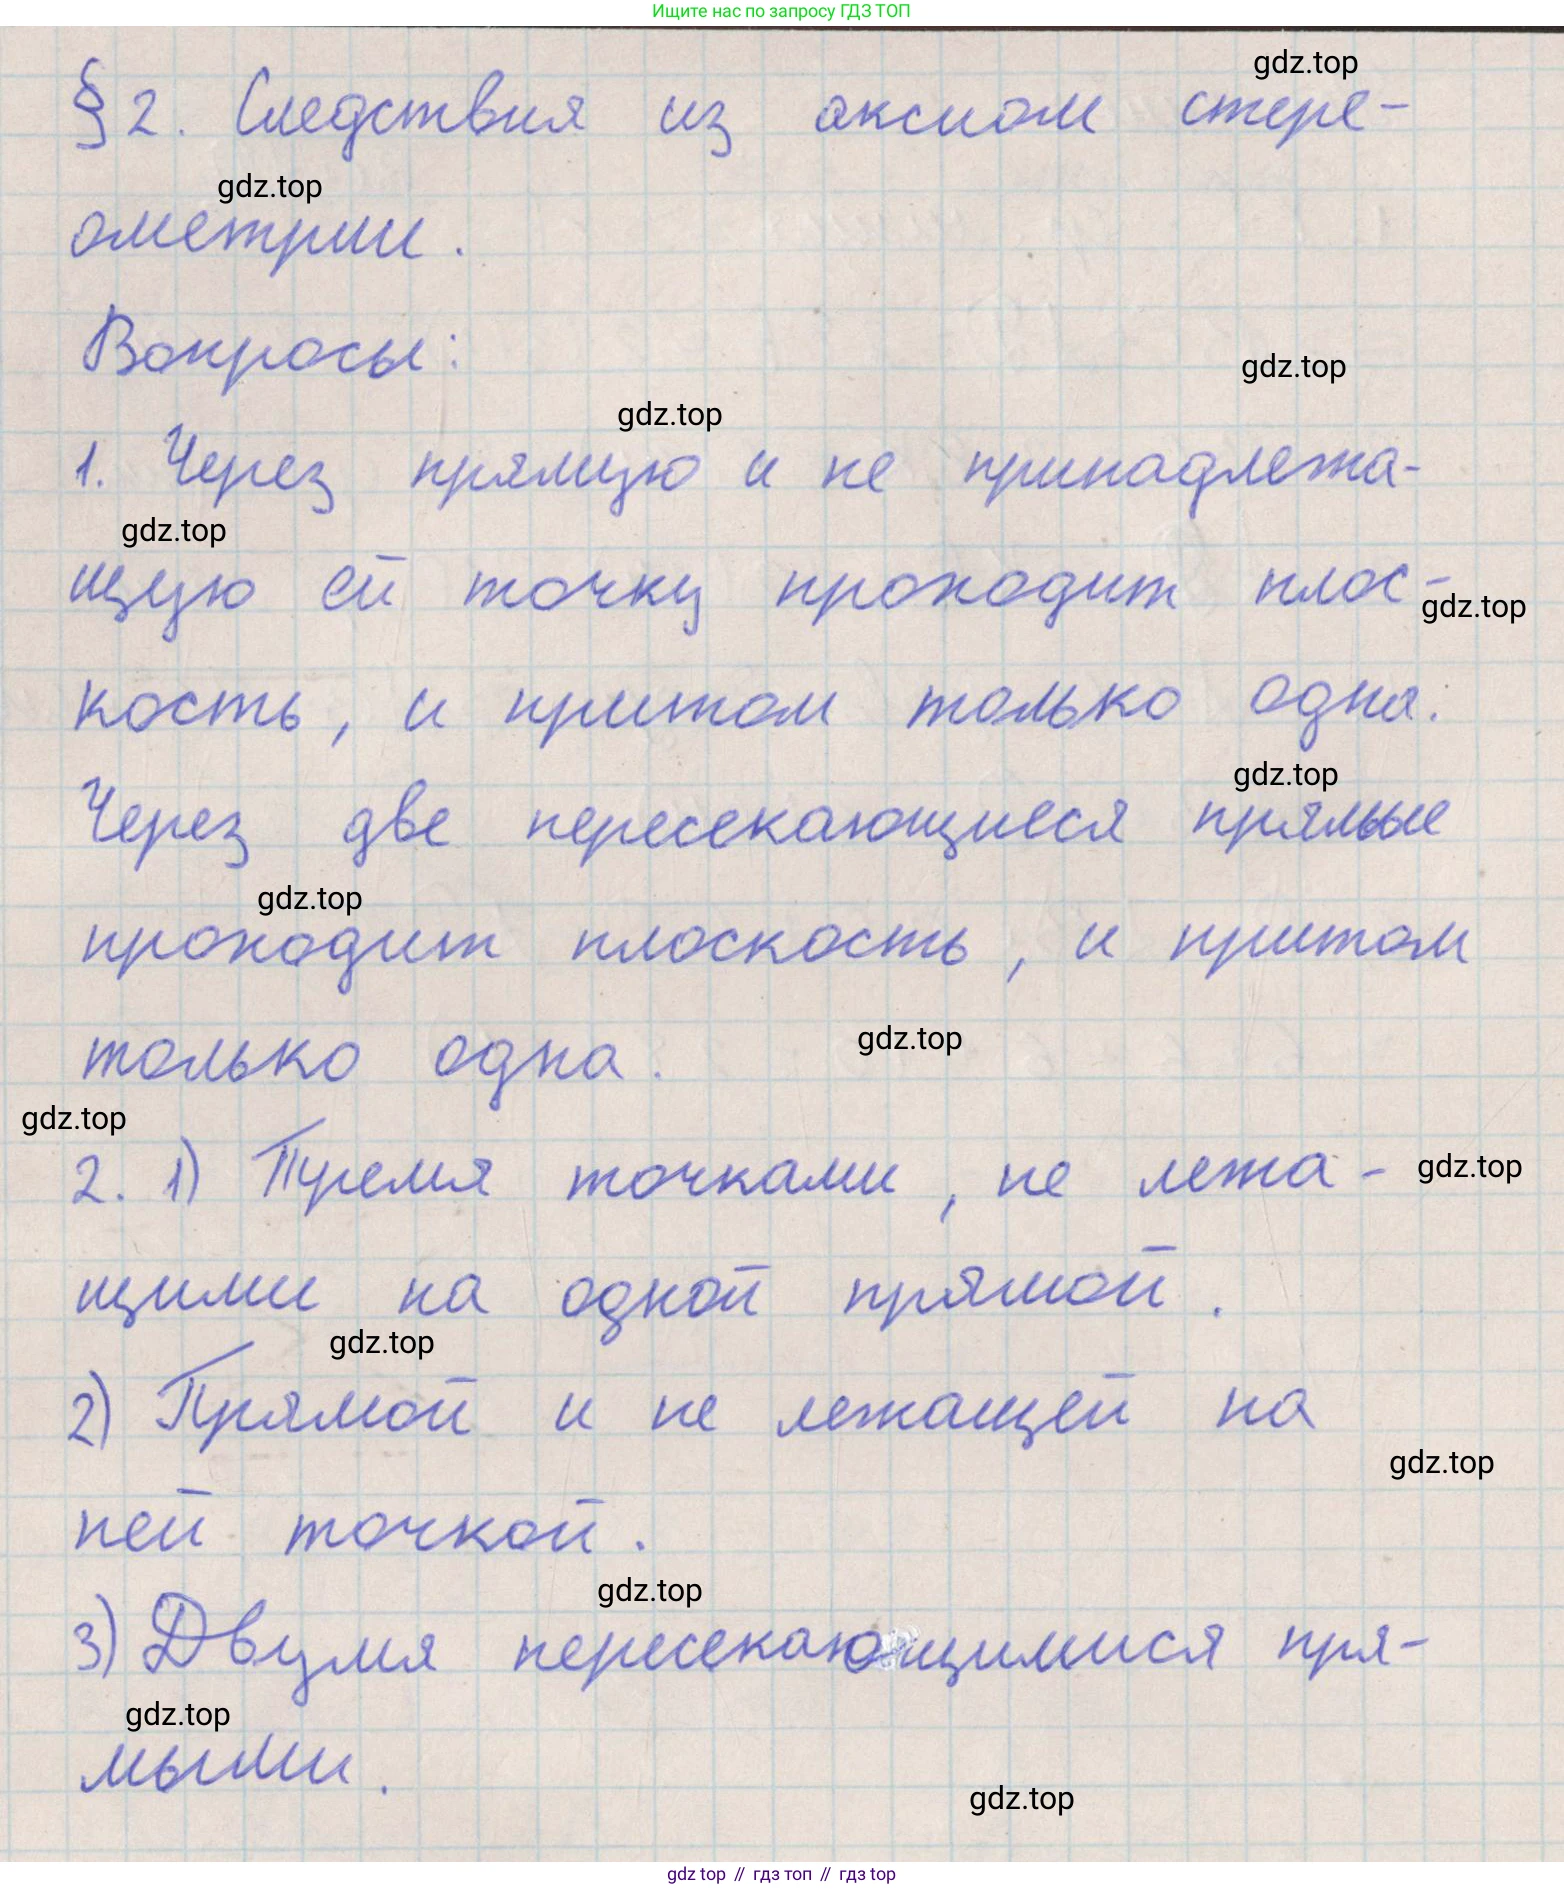 Ищите нас по запросу ГДЗ ТОП
gdz.top
§ 2. Следствия из аксиом стере-
gdz.top
ометрии.
Вопросы:
gdz.top
gdz.top
1. Через прямую и не принадлежа-
gdz.top
щую ей точку проходит плос-
gdz.top
кость, и притом только одна.
gdz.top
Через две пересекающиеся прямые
gdz.top
проходит плоскость, и притом
gdz.top
только одна.
gdz.top
2. 1) Тремя точками, не лежа-
gdz.top
щими на одной прямой.
gdz.top
2) Прямой и не лежащей на
gdz.top
ней точкой.
gdz.top
3) Двумя пересекающимися пря-
gdz.top
мыми.
gdz.top
gdz top // гдз топ // гдз top